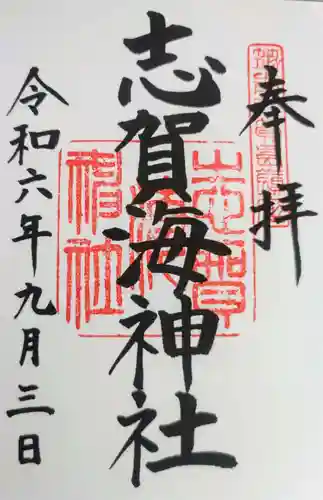 奉拝
志賀海神社
令和六年九月三日